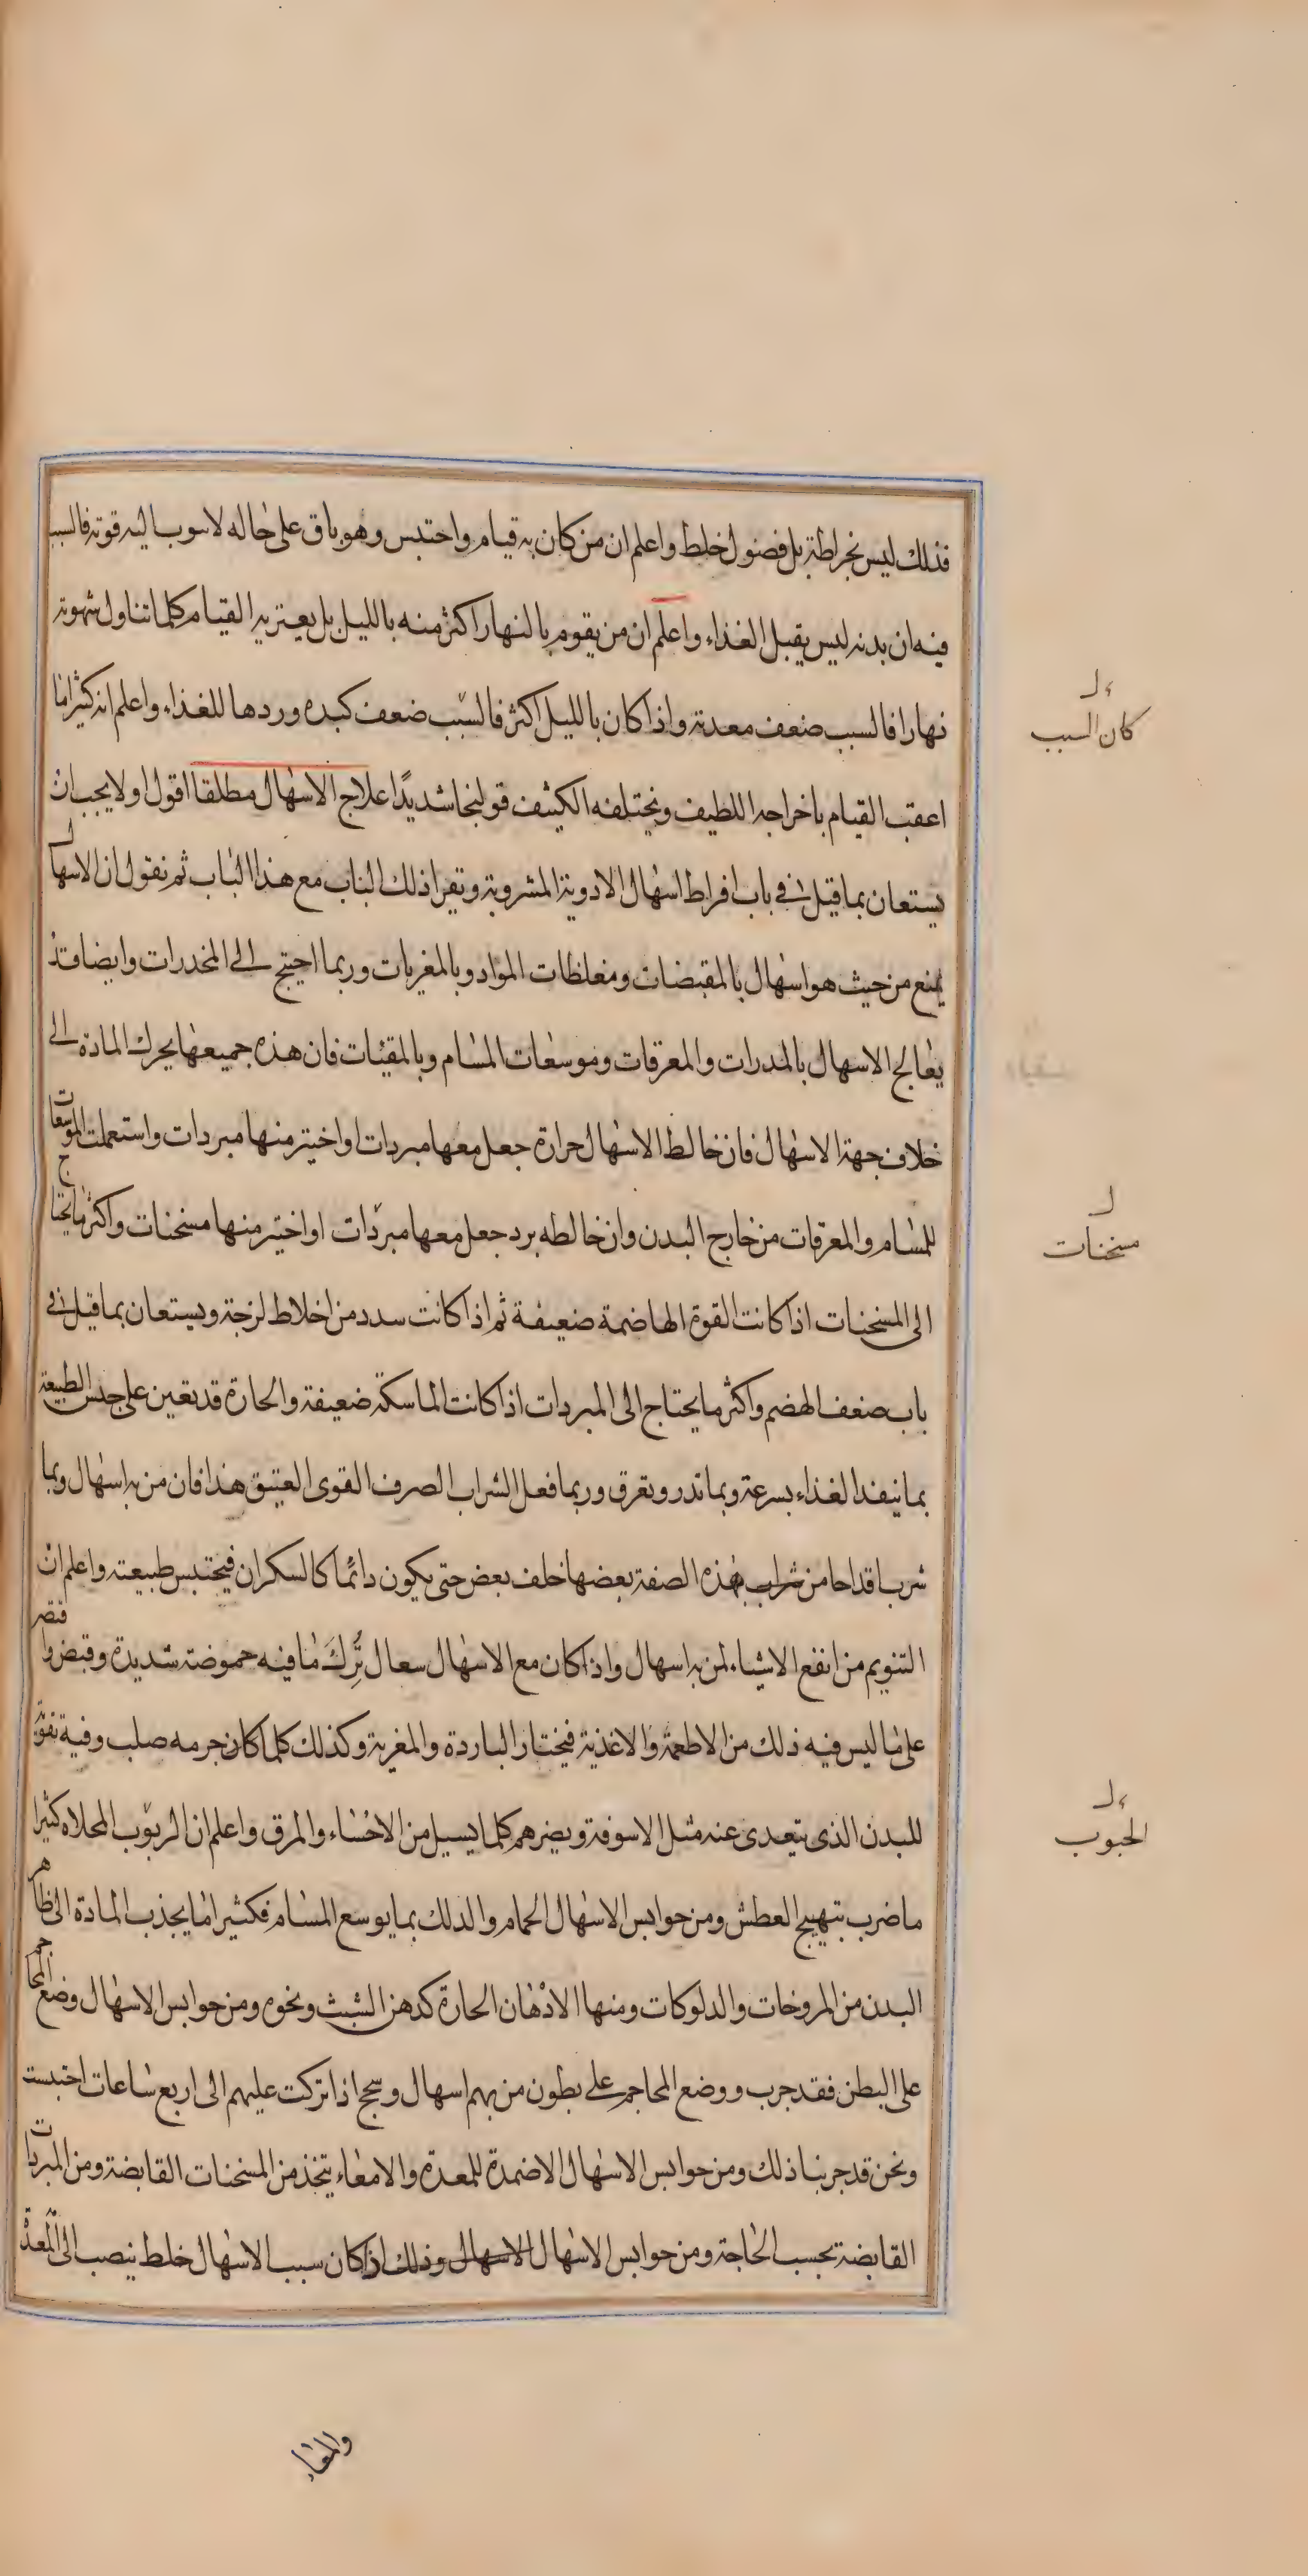 فذلك ليس بخراطة بل فضول خلط واعلم ان من كان به قيام واحتبس وهو باق على حاله لا سوب اليه قوته فالسبب
فيه ان بدنه ليس يقبل الغذاء واعلم ان من يقوم بالنهار اكثر منه بالليل بل يعتريه القيام كلما تناول شهوته
نهارا فالسبب ضعف معدته واذا كان بالليل اكثر فالسبب ضعف كبده وردها للغذاء واعلم انه كثيرا ما
كان السبب
اعقب القيام باخراجه اللطيف وتختلفه الكثيف قولنجا شديدا علاج الاسهال مطلقا اقول اولا يجب ان
يستعان بما قيل في باب افراط اسهال الادوية المشروبة وتقرا ذلك الباب مع هذا الباب ثم نقول ان الاسهال
يمنع من حيث هو اسهال بالمقبضات ومغلظات المواد وبالمغريات وربما احتيج الى المخدرات وايضا قد
يعالج الاسهال بالمدرات والمعرقات وموسعات المسام وبالمقيئات فان هذه جميعها يحرك المادة الى
خلاف جهة الاسهال فان خالط الاسهال حرارة جعل معها مبردات او اختير منها مبردات واستعملت الموسعات
للمسام والمعرقات من خارج البدن وان خالطه برد جعل معها مبردات او اختير منها مسخنات واكثر ما يحتاج
مسخنات
الى المسخنات اذا كانت القوة الهاضمة ضعيفة ثم اذا كانت سدد من اخلاط لزجة ويستعان بما قيل في
باب ضعف الهضم واكثر ما يحتاج الى المبردات اذا كانت الماسكة ضعيفة والحارة قد تعين على حبس الطبيعة
بما ينفد الغذاء بسرعة وبما تدر وتعرق وربما فعل الشراب الصرف القوى العتيق هذا فان من به اسهال وبما
شرب اقداحا من شراب بهذه الصفة بعضها خلف بعض حتى يكون دائما كالسكران فيحتبس طبيعته واعلم ان
التنويم من انفع الاشياء لمن به اسهال واذا كان مع الاسهال سعال ترك ما فيه حموضة شديدة وقبض واقتصر
على ما ليس فيه ذلك من الاطعمة والاغذية فيختار الباردة والمغرية وكذلك كلما كان جرمه صلب وفيه تقوية
للبدن الذى يتعدى عنه مثل الاسوقة ويضرهم كلما يسيل من الاحساء والمرق واعلم ان الربوب المحلاه كثيرا
الحبوب
ما ضرب بتهييج العطش ومن حوابس الاسهال الحمام والدلك بما يوسع المسام فكثيرا ما يجذب المادة الى ظاهر
البدن من المروخات والدلوكات ومنها الادهان الحارة كدهن الشبث ونحوه ومن حوابس الاسهال وضع المحاجم
على البطن فقد جرب ووضع المحاجم على بطون من بهم اسهال وسحج اذا تركت عليهم الى اربع ساعات احتبست
ونحن قد جربنا ذلك ومن حوابس الاسهال الاضمدة للمعدة والامعاء يتخذ من المسخنات القابضة ومن المبردات
القابضة بحسب الحاجة ومن حوابس الاسهال الاسهال وذلك اذا كان سبب الاسهال خلط ينصب الى المعدة